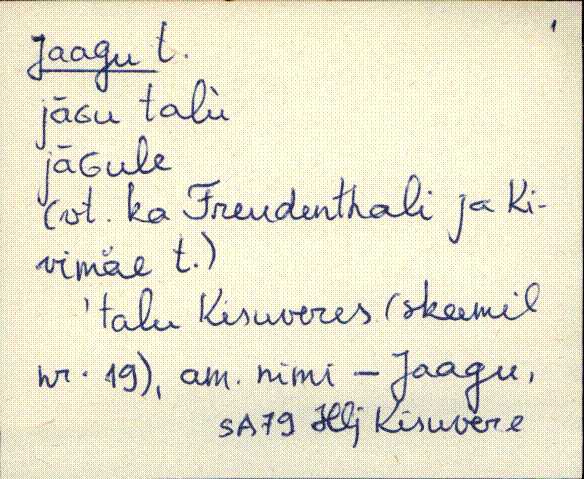 Jaagu t.
jāɢu talù
jāɢule
(vt. ka Freudenthali ja Ki-
vimäe t.)
'talu Kisuveres (skeemil
nr. 19), am. nimi – Jaagu,
SA79 Hlj Kisuvere